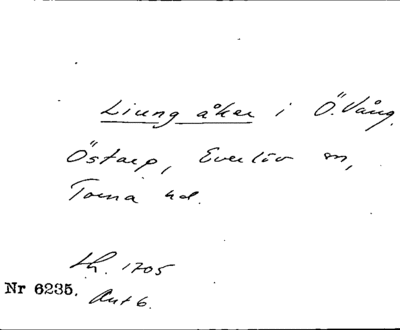 Liung åker i Ö. Vång.
Östarp, Everlöv sn,
Torna hd.
Lh. 1705
Nr 6235. Akt 6.